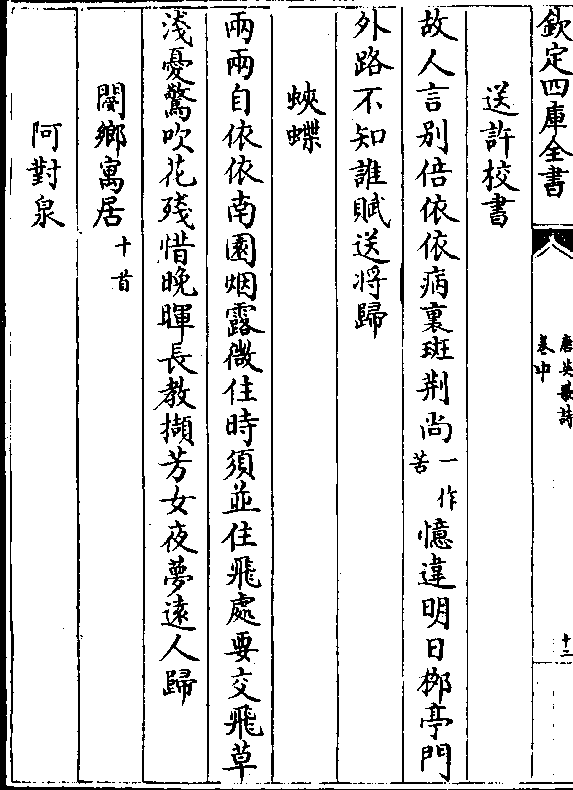 欽定四庫全書
唐英歌詩
卷中
十二
送許校書
故人言别倍依依病裏班荆尚一作苦憶違明日栁亭門
外路不知誰賦送将歸
蛺蝶
兩兩自依依南園烟露微住時須並住飛處要交飛草
淺憂驚吹花殘惜晚暉長教擷芳女夜夢逺人歸
閿鄉寓居十首
阿對泉